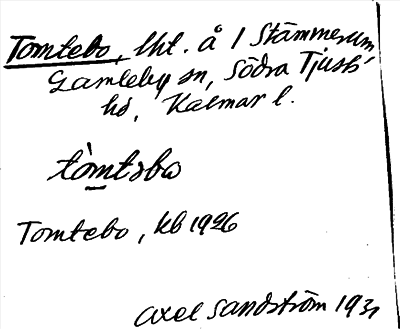 Tomtebo, lht. å 1 Stämmerum,
Gamleby sn, Södra Tjusts
hd, Kalmar l.
tòmtəbω
Tomtebo, kb 1926
Axel Sandström 1931